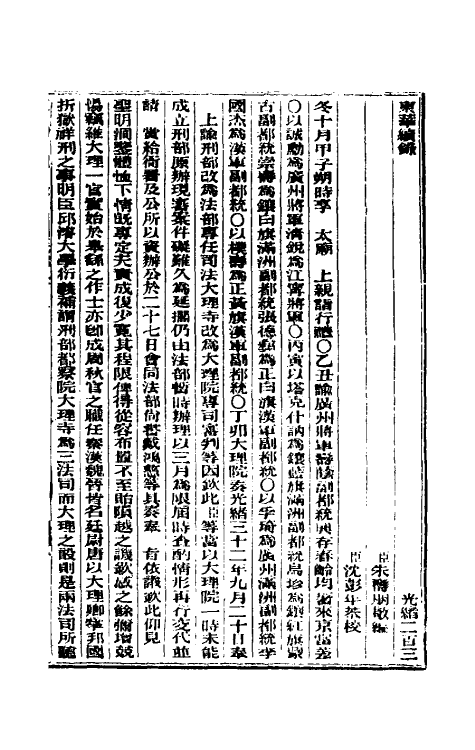 東華續錄
光緒二百三
臣朱壽朋敬編
臣沈彭年恭校
冬十月甲子朔時享　太廟　上親詣行禮○乙丑諭廣州將軍壽蔭副都統興存春齡均著來京當差
○以誠勳為廣州將軍清銳為江寧將軍○丙寅以塔克什訥為鑲藍旗滿洲副都統烏珍為鑲紅旗蒙
古副都統崇壽為鑲白旗滿洲副都統張德彝為正白旗漢軍副都統○以孚琦為廣州滿洲副都統李
國杰為漢軍副都統○以樸壽為正黃旗漢軍副都統○丁卯大理院奏光緒三十二年九月二十日奉
上諭刑部改為法部專任司法大理寺改為大理院專司審判等因欽此臣等當以大理院一時未能
成立刑部原辦現審案件礙難久為延擱仍由法部暫時辦理以三月為限屆時查酌情形再行交代並
請　賞給衙署及公所以資辦公於二十七日會同法部尚書戴鴻慈等具奏奉　旨依議欽此仰見
聖明洞鑒體恤下情既專定夫責成復少寬其程限俾得從容布置不至貽隕越之譏欽感之餘彌增兢
惕竊維大理一官實始於皋繇之作士亦即成周秋官之職任秦漢魏晉皆名廷尉唐以大理卿掌邦國
折獄祥刑之事明臣邱濬大學衍義補謂刑部都察院大理寺為三法司而大理之設則是兩法司所聽